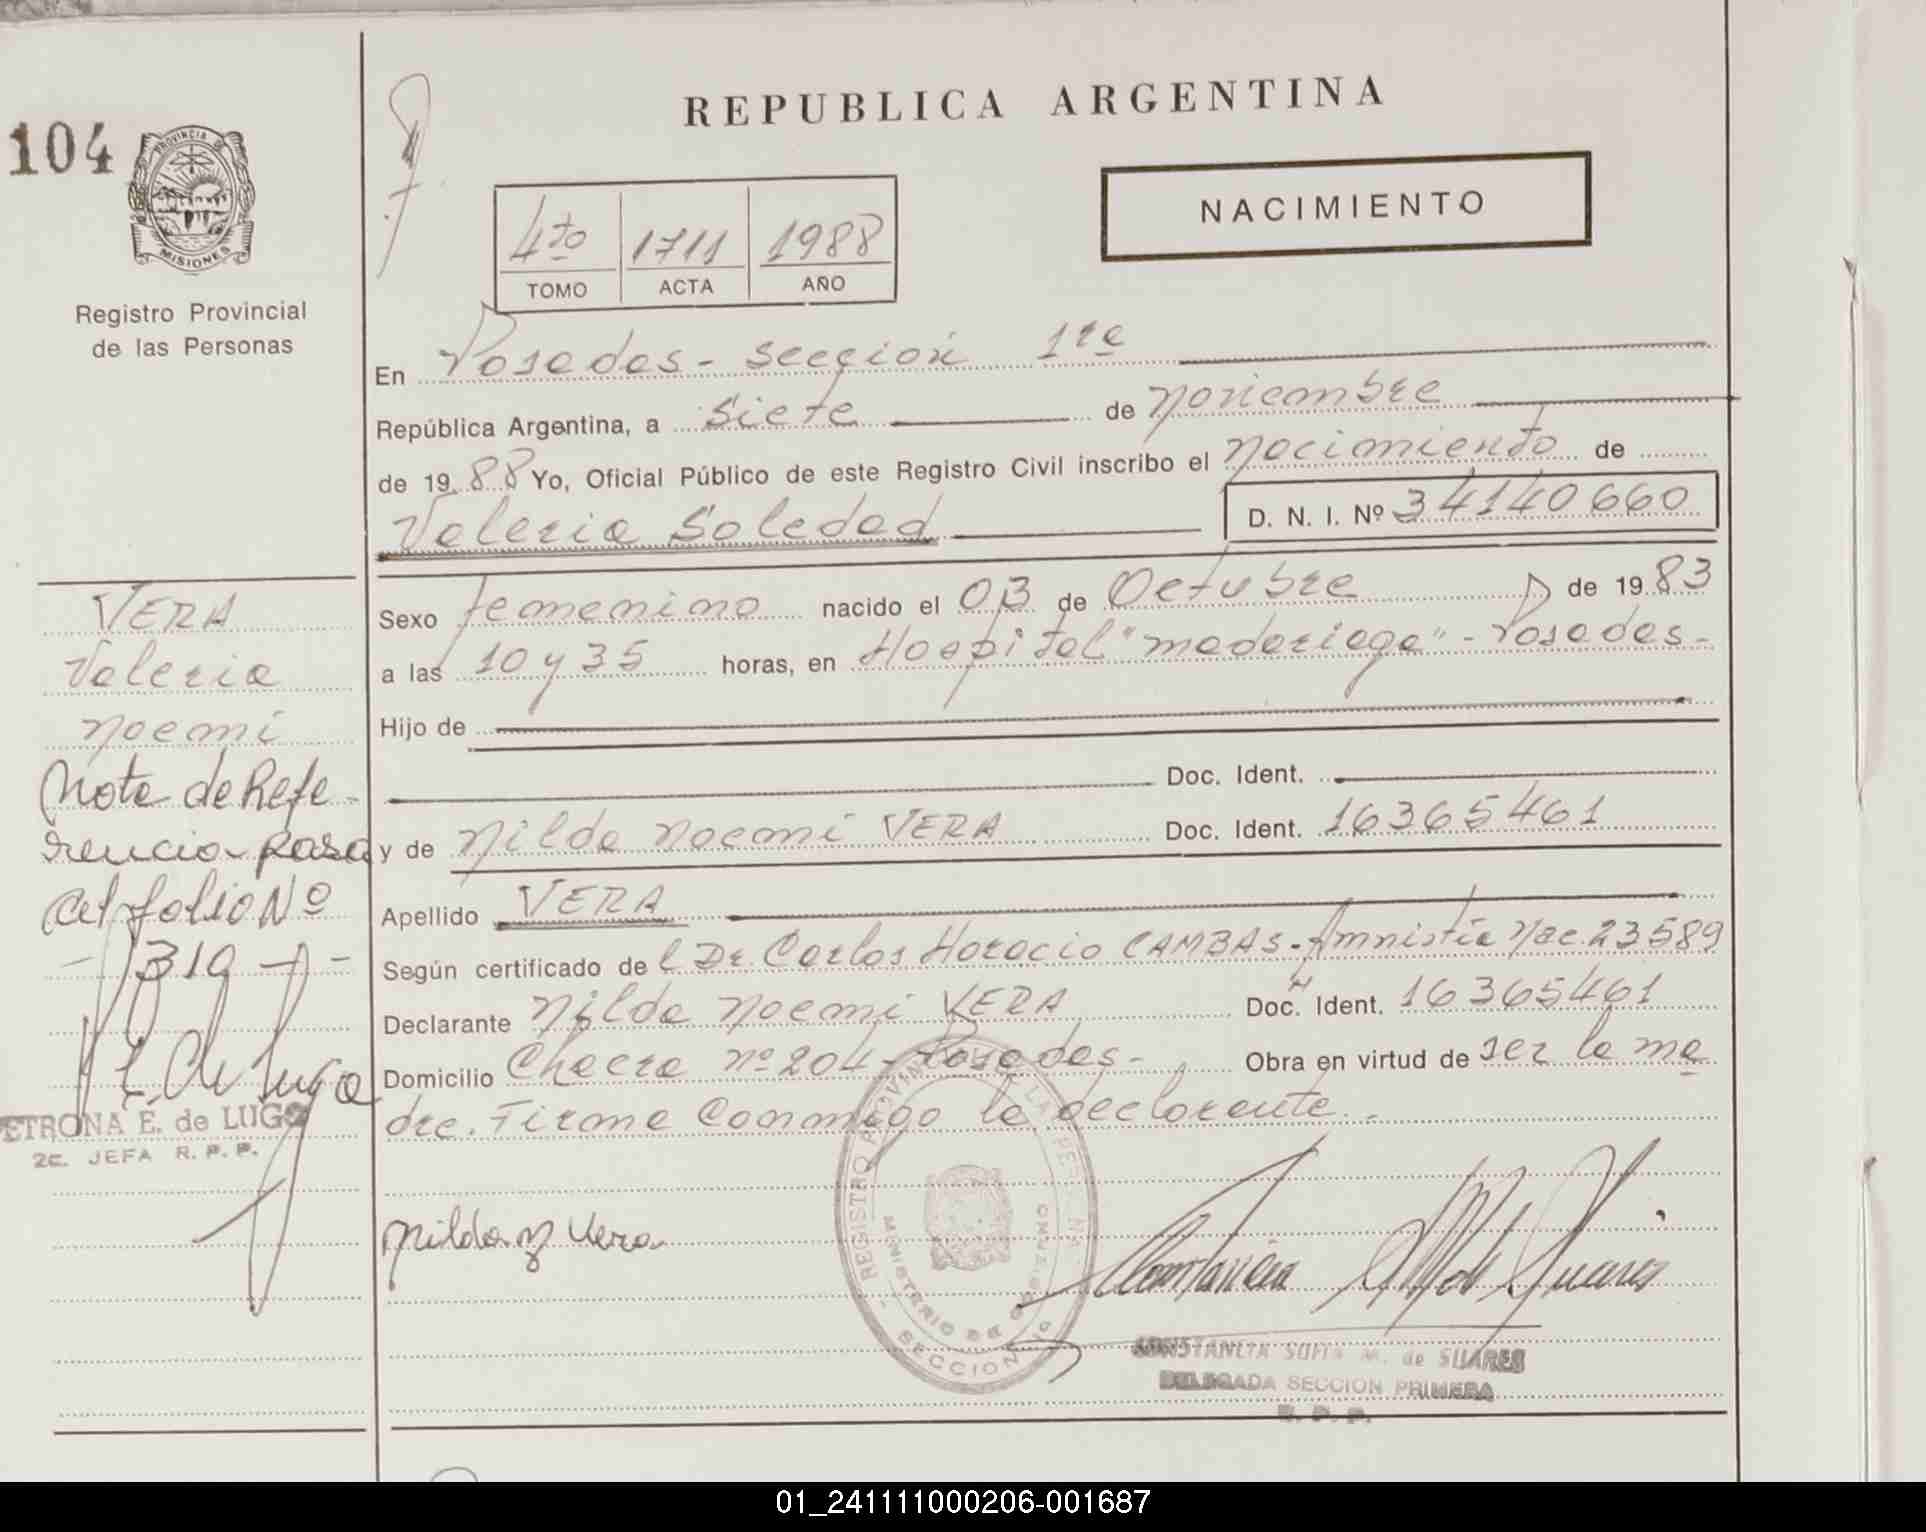 104
PROVINCIA DE
MISIONES
Registro Provincial
de las Personas
REPUBLICA ARGENTINA
NACIMIENTO
4to 1711 1988
TOMO ACTA AÑO
En Posadas - sección 1ra
República Argentina, a siete de noviembre
de 1988 Yo, Oficial Público de este Registro Civil inscribo el nacimiento de
Valeria Soledad D. N. I. Nº 34140660
Sexo femenino nacido el 03 de Octubre de 1983
a las 10 y 35 horas, en Hospital "madariaga" - Posadas-
Hijo de
Doc. Ident.
y de Nilda Noemi VERA Doc. Ident. 16365461
Apellido VERA
Según certificado del Dr. Carlos Horacio CAMBAS - Amnistía Nac. 23589
Declarante Nilda Noemi VERA Doc. Ident. 16365461
Domicilio Chacra nº 204 - Posadas- Obra en virtud de ser la ma
dre. Firma Conmigo la declarante.-
Nilda N Vera
Constancia M de Suares
CONSTANCIA SOFIA M. de SUARES
DELEGADA SECCION PRIMERA
R. P. P.
REGISTRO PROVINCIAL DE LAS PERSONAS
MINISTERIO DE GOBIERNO
SECCION 1a
VERA
Valeria
Noemi
Nota de Refe-
rencia pasa
al folio Nº
- 319 -
P. E. de Lugo
ETRONA E. de LUGO
2a. JEFA R. P. P.
01_241111000206-001687